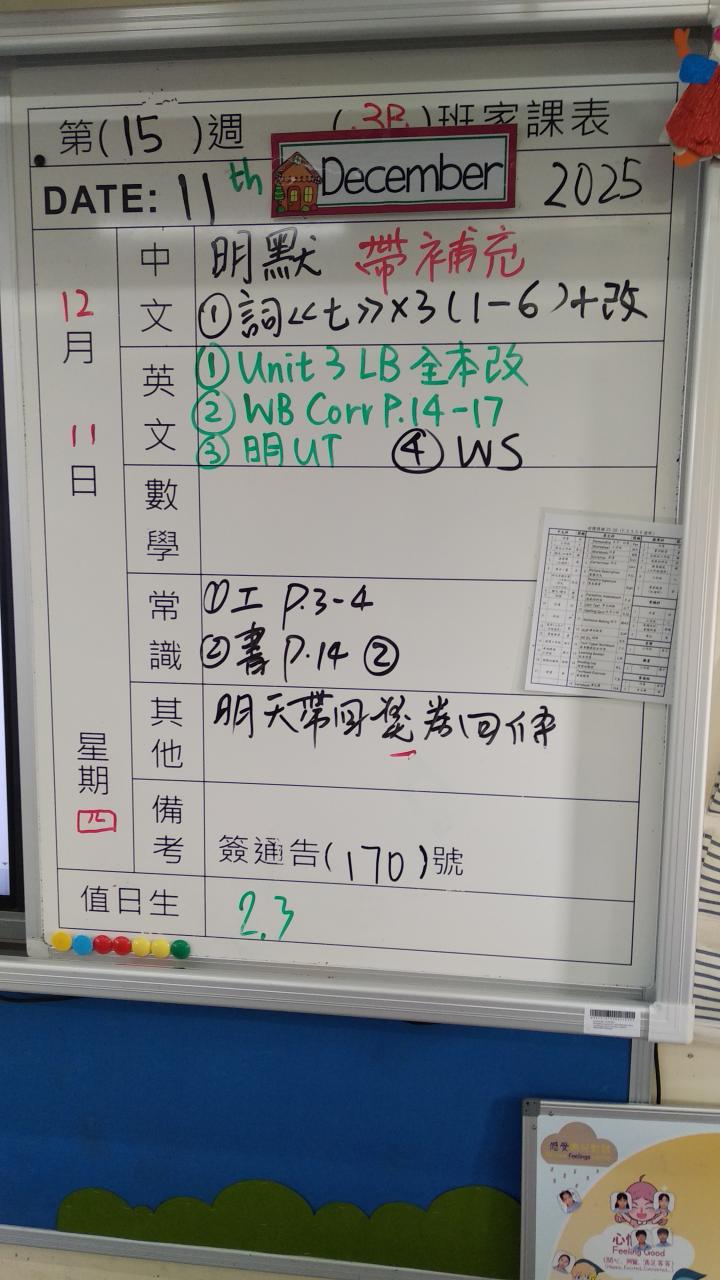 第(15)週 (3B)班家課表
DATE: 11th December 2025
12月11日 星期四
中文
明默 帶補充
①詞<<七>>×3(1-6)+改
英文
①Unit 3 LB 全本改
②WB Corr P.14-17
③明UT ④WS
數學
常識
①工 P.3-4
②書 P.14 ②
其他
明天帶回獎券回條
備考
簽通告(170)號
值日生
2.3
感受
Feelings
Feeling Good